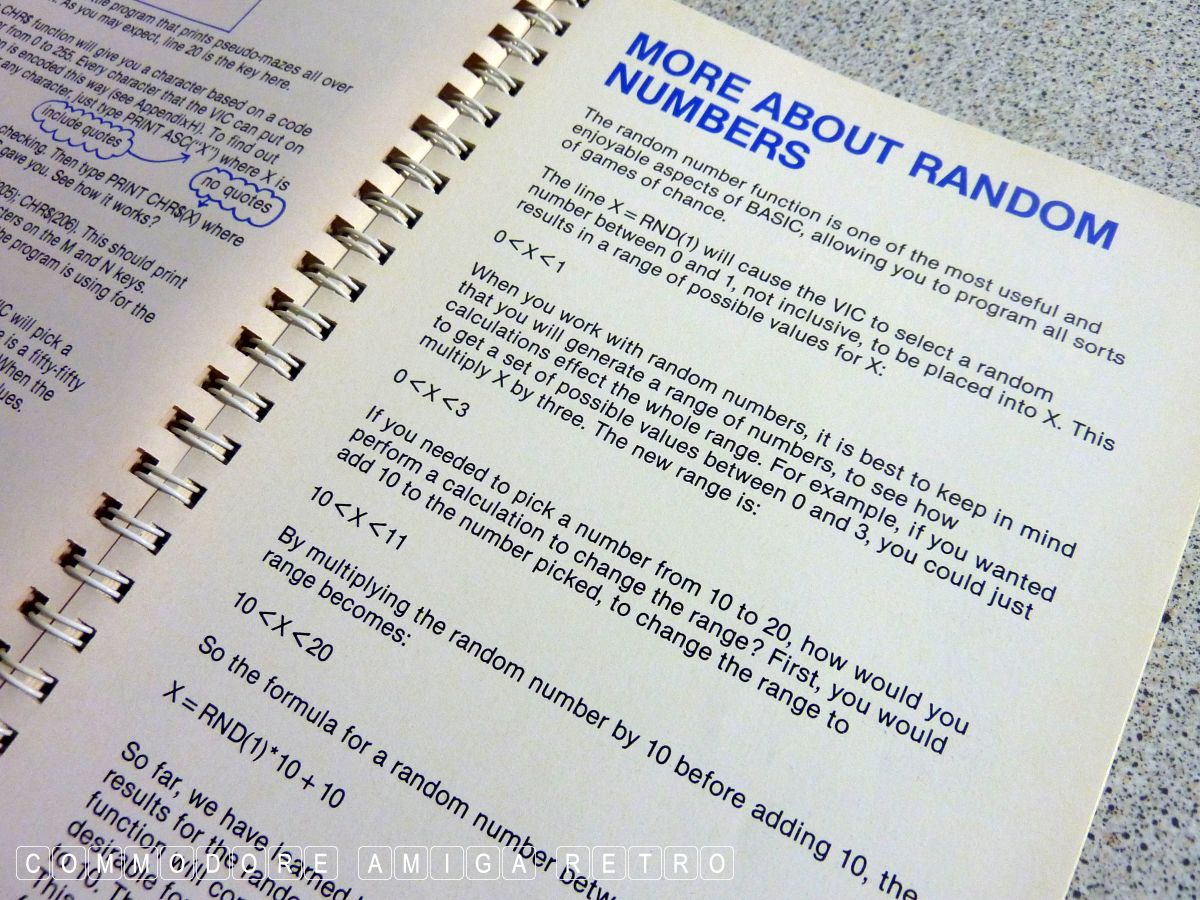 the program that prints pseudo-mazes all over
As you may expect, line 20 is the key here.
CHR$ function will give you a character based on a code
from 0 to 255. Every character that the VIC can put on
is encoded this way (see Appendix H). To find out
any character, just type PRINT ASC("X") where X is
include quotes
checking. Then type PRINT CHR$(X) where
no quotes
gave you. See how it works?
CHR$(206). This should print
on the M and N keys.
the program is using for the
will pick a
is a fifty-fifty
When the
MORE ABOUT RANDOM
NUMBERS
The random number function is one of the most useful and
enjoyable aspects of BASIC, allowing you to program all sorts
of games of chance.
The line X = RND(1) will cause the VIC to select a random
number between 0 and 1, not inclusive, to be placed into X. This
results in a range of possible values for X:
0 < X < 1
When you work with random numbers, it is best to keep in mind
that you will generate a range of numbers, to see how
calculations effect the whole range. For example, if you wanted
to get a set of possible values between 0 and 3, you could just
multiply X by three. The new range is:
0 < X < 3
If you needed to pick a number from 10 to 20, how would you
perform a calculation to change the range? First, you would
add 10 to the number picked, to change the range to
10 < X < 11
By multiplying the random number by 10 before adding 10, the
range becomes:
10 < X < 20
So the formula for a random number between
X = RND(1)*10 + 10
So far, we have learned
results for the random
function will
desirable
to 10.
This
COMMODORE AMIGA RETRO